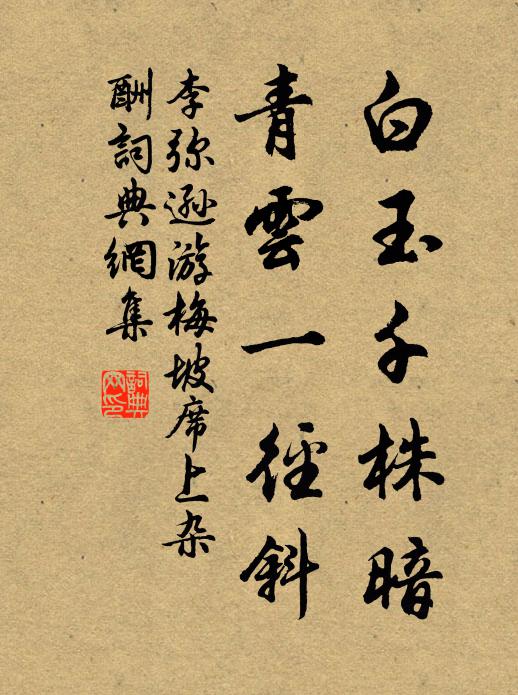 白玉千株暗
青雲一徑斜
李弥遜游梅坡席上杂
酬詞典網集
詞典
网印